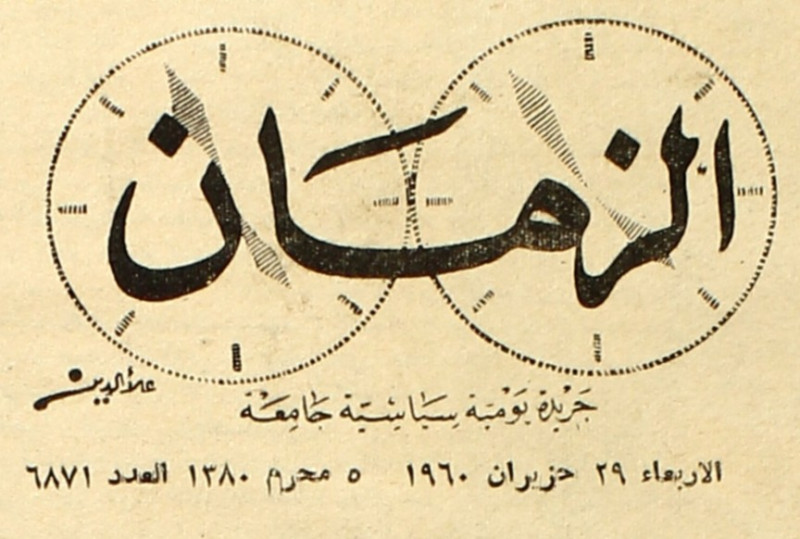 الزمان
علاء الدين
جَريْدة يَوْميّة سيَاسيّة جَامِعَة
الاربعاء ٢٩ حزيران ١٩٦٠ ٥ محرم ١٣٨٠ العدد ٦٨٧١